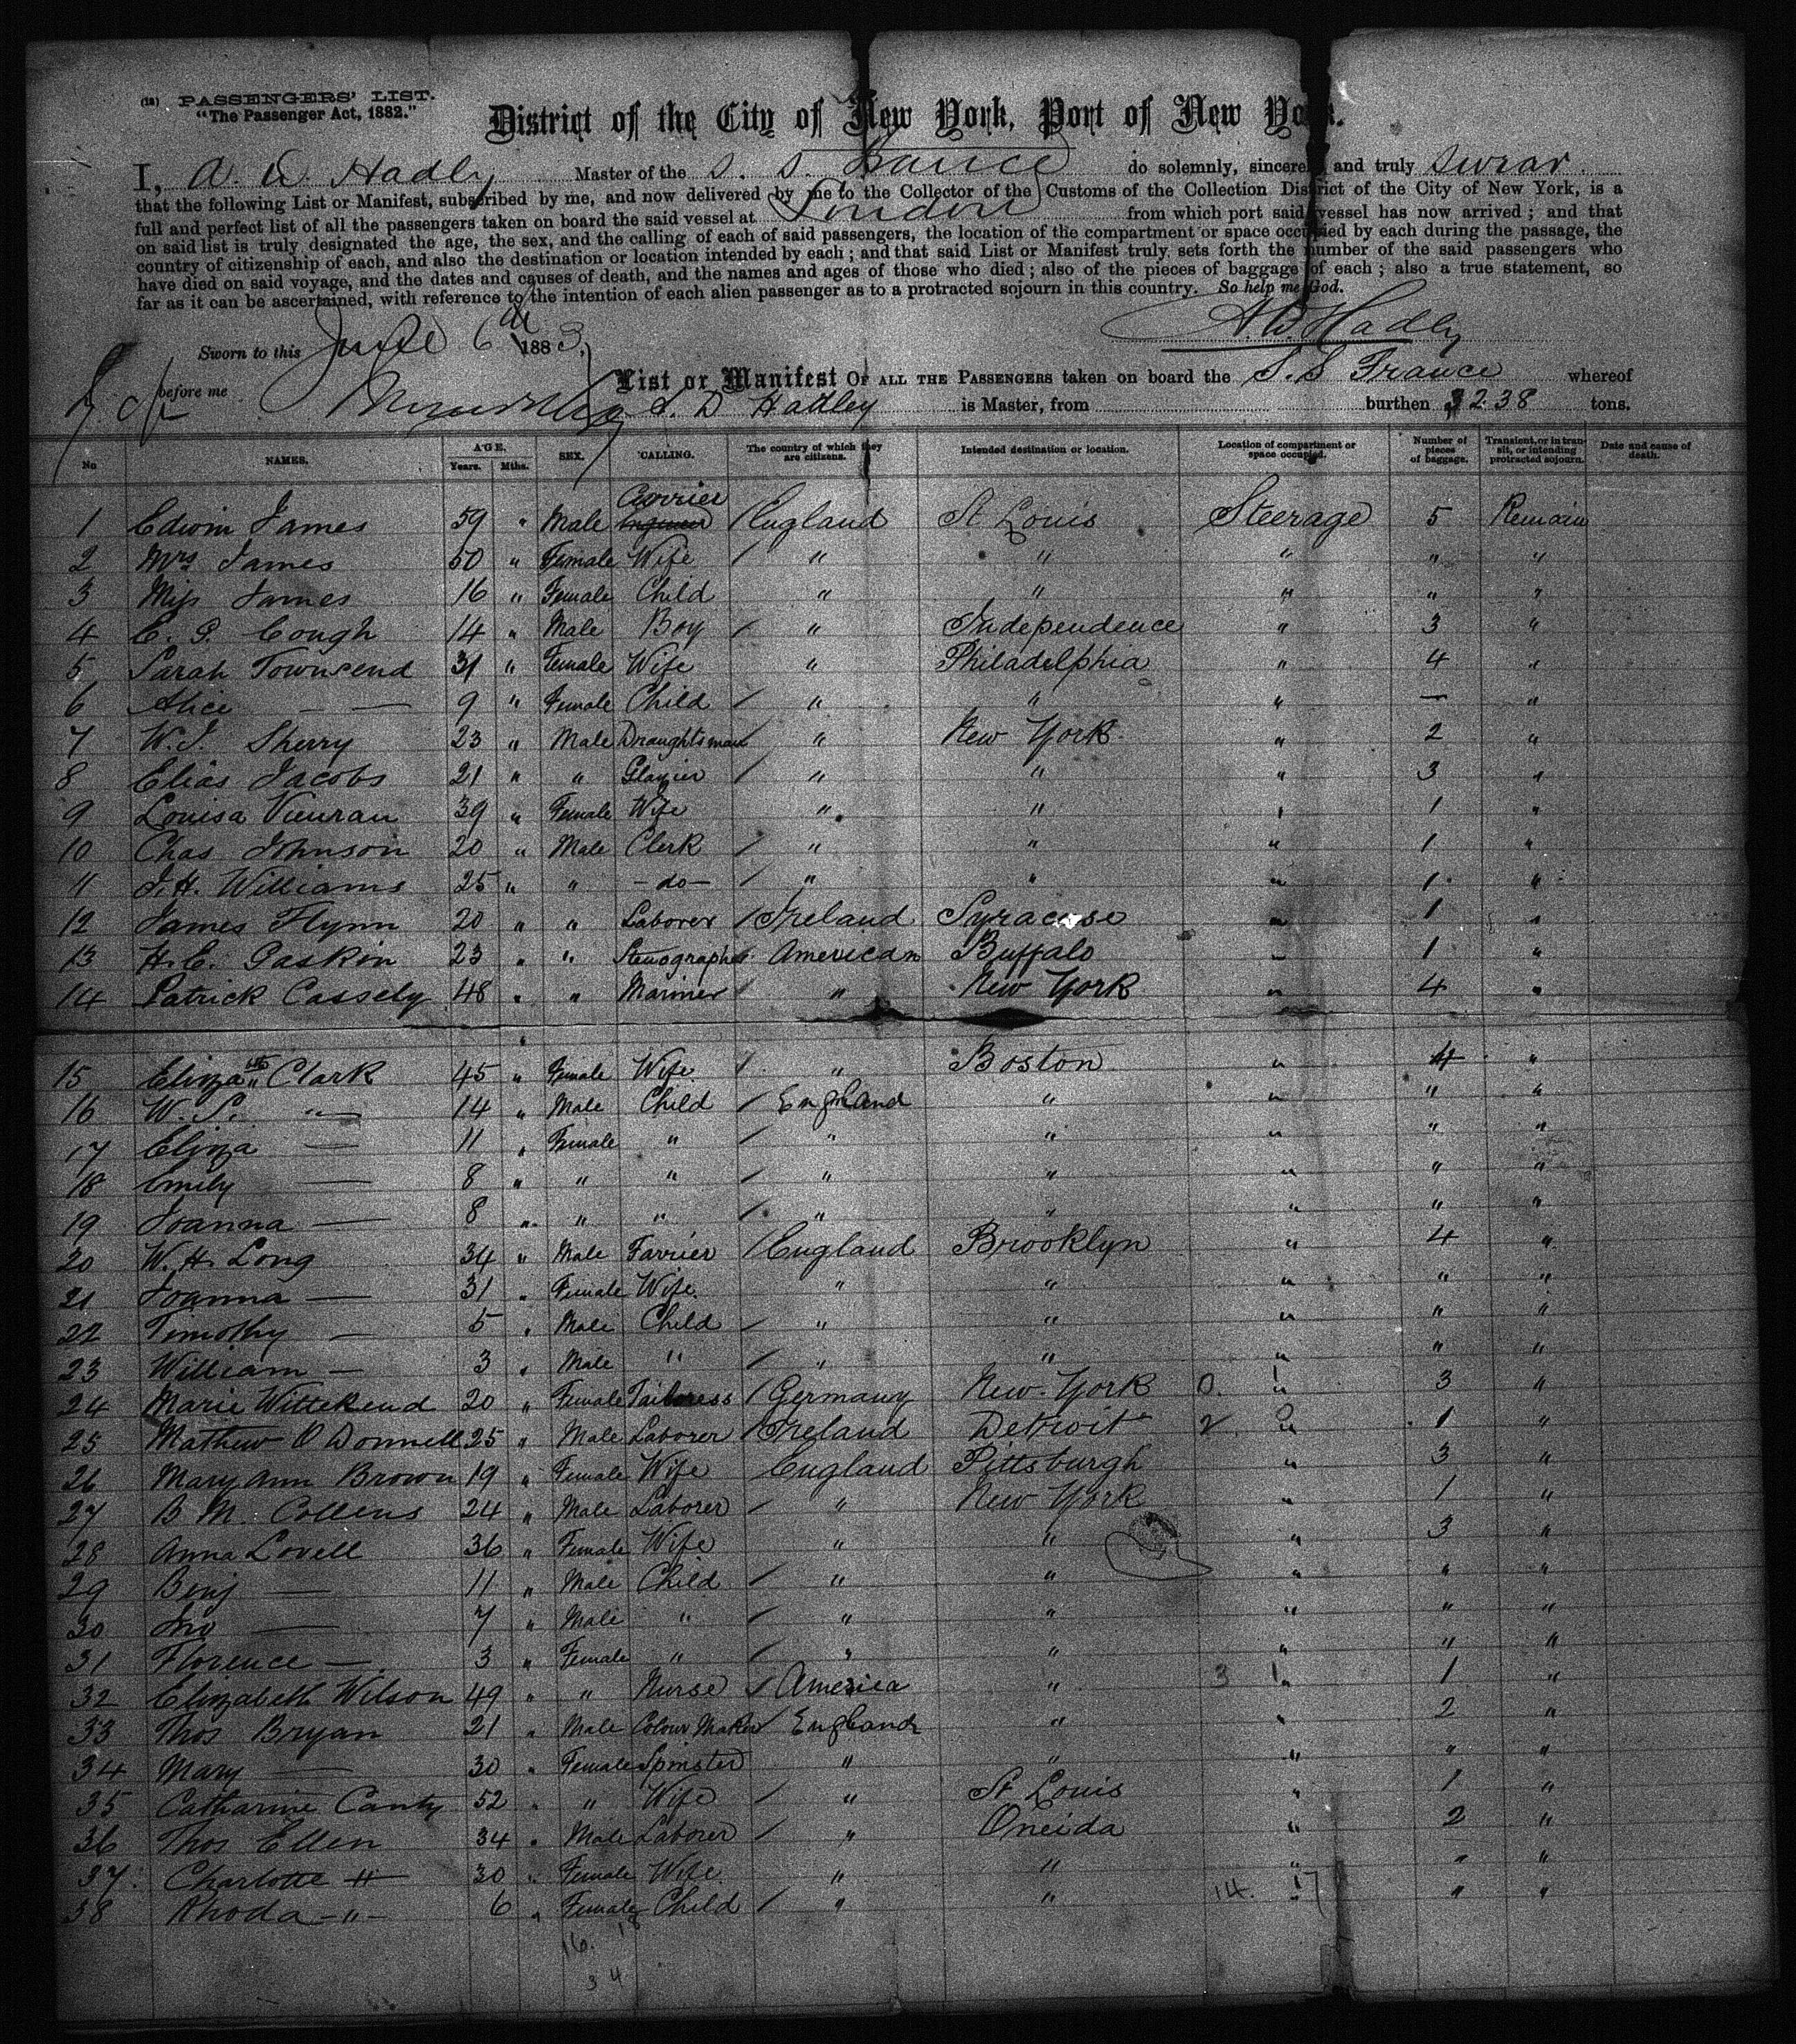 (12) PASSENGERS' LIST.
"The Passenger Act, 1882."
District of the City of New York, Port of New York.
I, A. D. Hadley Master of the S. S. France do solemnly, sincerely and truly swear
that the following List or Manifest, subscribed by me, and now delivered by me to the Collector of the Customs of the Collection District of the City of New York, is a
full and perfect list of all the passengers taken on board the said vessel at London from which port said vessel has now arrived; and that
on said list is truly designated the age, the sex, and the calling of each of said passengers, the location of the compartment or space occupied by each during the passage, the
country of citizenship of each, and also the destination or location intended by each; and that said List or Manifest truly sets forth the number of the said passengers who
have died on said voyage, and the dates and causes of death, and the names and ages of those who died; also of the pieces of baggage of each; also a true statement, so
far as it can be ascertained, with reference to the intention of each alien passenger as to a protracted sojourn in this country. So help me God.
A. D. Hadley
Sworn to this June 6th 1883,
before me
List or Manifest OF ALL THE PASSENGERS taken on board the S. S France whereof
A. D Hadley is Master, from burthen 3238 tons.
No NAMES. AGE. Years. Mths. SEX. CALLING. The country of which they are citizens. Intended destination or location. Location of compartment or space occupied. Number of pieces of baggage. Transient, or in transit, or intending protracted sojourn. Date and cause of death.
Carrier
1 Edwin James 59 " Male England St Louis Steerage 5 Remain
2 Mrs James 50 " Female Wife / " " " " "
3 Miss James 16 " Female Child " " " " "
4 E. G. Cough 14 " Male Boy / " Independence " 3 "
5 Sarah Townsend 31 " Female Wife " Philadelphia " 4 "
6 Alice — — 9 " Female Child / " " " — "
7 W. J. Sherry 23 " Male Draughtsman " New York " 2 "
8 Elias Jacobs 21 " " Glazier / " " " 3 "
9 Louisa 39 " Female Wife " " " 1 "
10 Chas Johnson 20 " Male Clerk / " " " 1 "
11 J. H. Williams 25 " " - do - / " " " 1 "
12 James Flynn 20 " " Laborer / Ireland Syracuse " 1 "
13 H. E. Gaskin 23 " " Stenographer American Buffalo " 1 "
14 Patrick Cassely 48 " " Mariner / " New York " 4 "
15 Elizath Clark 45 " Female Wife / " Boston " 4 "
16 W. S. " — 14 " Male Child / England " " " "
17 Eliza — 11 " Female " / " " " " "
18 Emily — 8 " " " / " " " " "
19 Joanna — 8 " " " / " " " " "
20 W. H. Long 34 " Male Farrier / England Brooklyn " 4 "
21 Joanna — 31 " Female Wife " " " " "
22 Timothy — 5 " Male Child / " " " " "
23 William — 3 " Male " / " " " " "
24 Marie Wittekend 20 " Female Tailoress / Germany New York 0. 1 " 3 "
25 Mathew O Donnell 25 " Male Laborer / Ireland Detroit 2 " 1 "
26 Mary Ann Brown 19 " Female Wife England Pittsburgh " 3 "
27 B. M. Collens 24 " Male Laborer / " New York " 1 "
28 Anna Lovell 36 " Female Wife " " " 3 "
29 Benj — 11 " Male Child / " " " " "
30 Jno — 7 " Male " / " " " " "
31 Florence — 3 " Female " / " " " " "
32 Elizabeth Wilson 49 " " Nurse / America " 3 1 " 1 "
33 Thos Bryan 21 " Male Colour Maker / England " " 2 "
34 Mary — 30 " Female Spinster " " " " "
35 Catharine Canty 52 " " Wife / " St Louis " 1 "
36 Thos Ellen 34 " Male Laborer / " Oneida " 2 "
37 Charlotte — " — 30 " Female Wife " " " " "
38 Rhoda - " - 6 " Female Child / " " 14. 17 " " "
16. 18
34